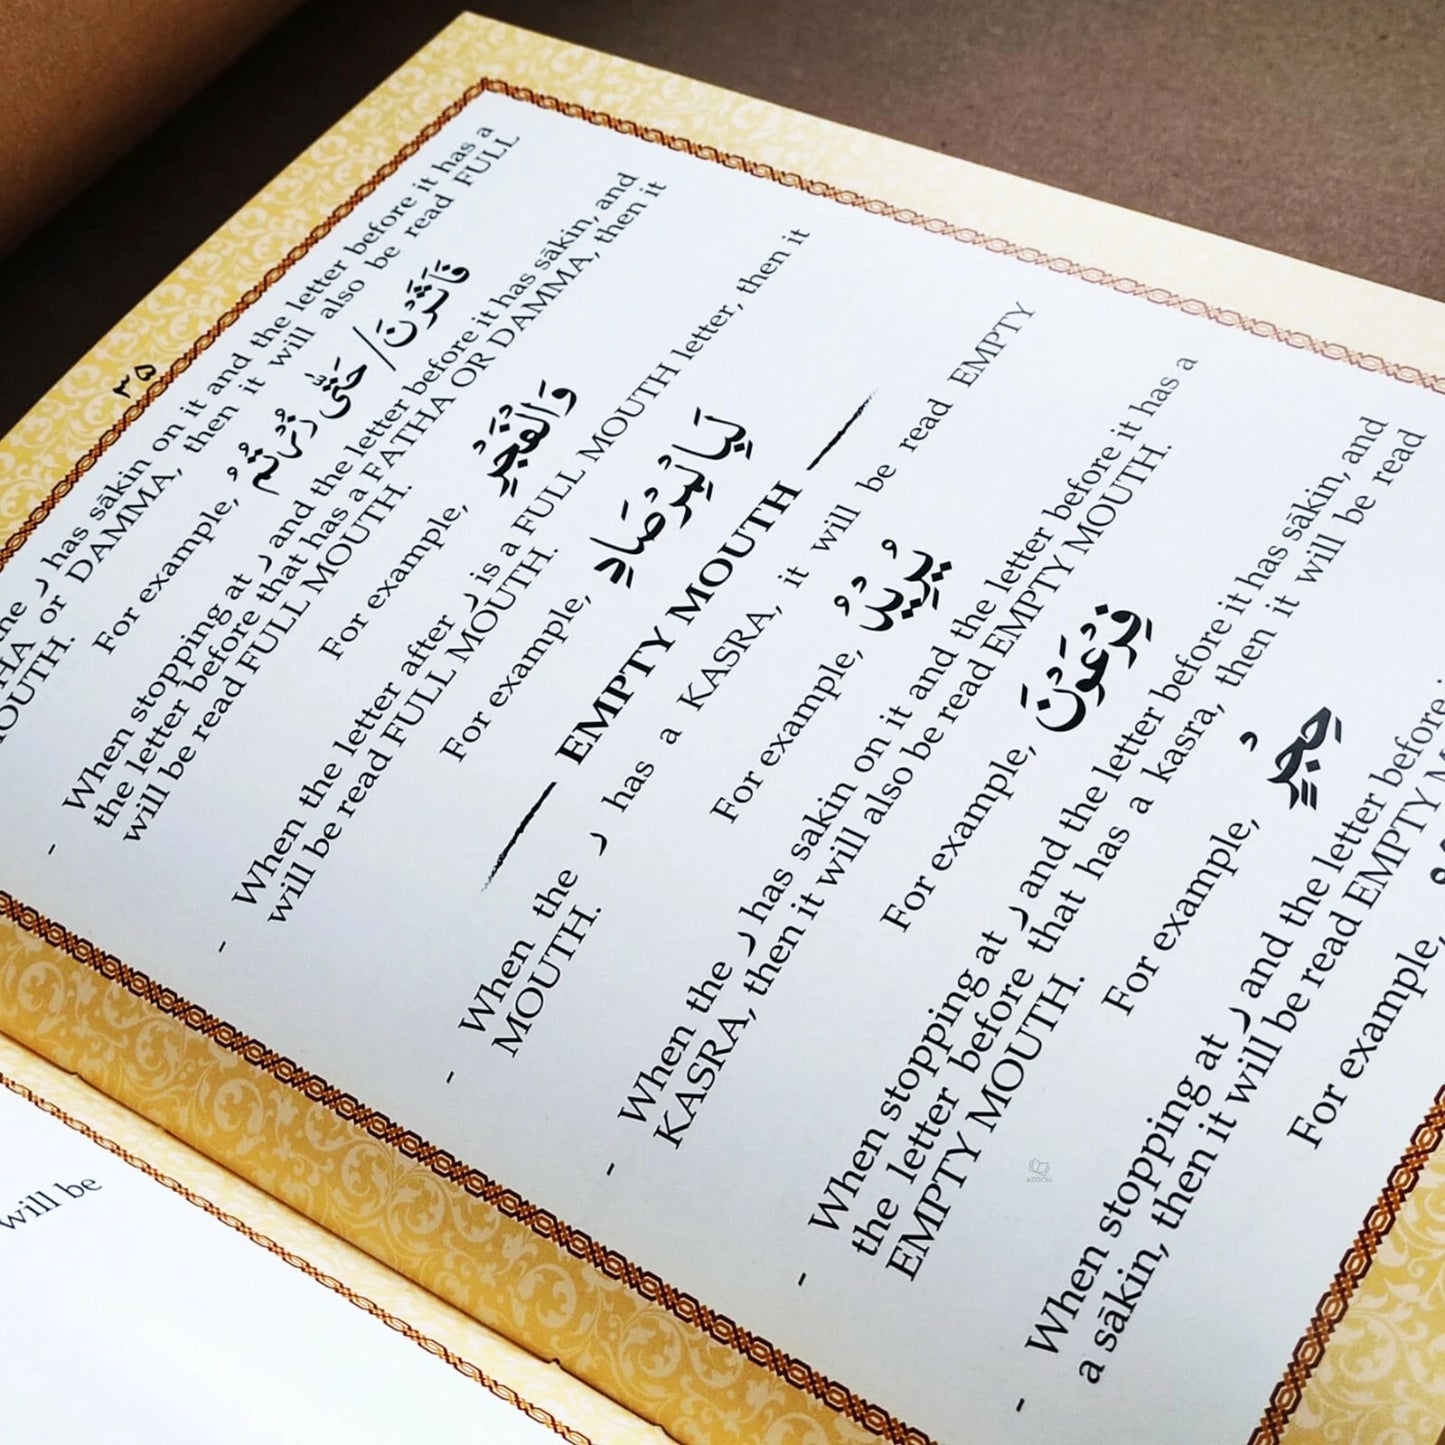 ۳۵
the ر has sākin on it and the letter before it has a
or DAMMA, then it will also be read FULL
MOUTH.
For example, زُرْتُمُ / حَتّٰى فَاَثَرْنَ
- When stopping at ر and the letter before it has sākin, and
the letter before that has a FATHA OR DAMMA, then it
will be read FULL MOUTH.
For example, وَالْفَجْرِ
- When the letter after ر is a FULL MOUTH letter, then it
will be read FULL MOUTH.
For example, لَبِا لْمِرْصَادِ
EMPTY MOUTH
- When the ر has a KASRA, it will be read EMPTY
MOUTH.
For example, يُرِيْدُ
- When the ر has sakin on it and the letter before it has a
KASRA, then it will also be read EMPTY MOUTH.
For example, فِرْعَوْنَ
- When stopping at ر and the letter before it has sākin, and
the letter before that has a kasra, then it will be read
EMPTY MOUTH.
For example, حِجْرٍ
- When stopping at ر and the letter before
a sākin, then it will be read EMPTY
For example,
will be
AZOOM